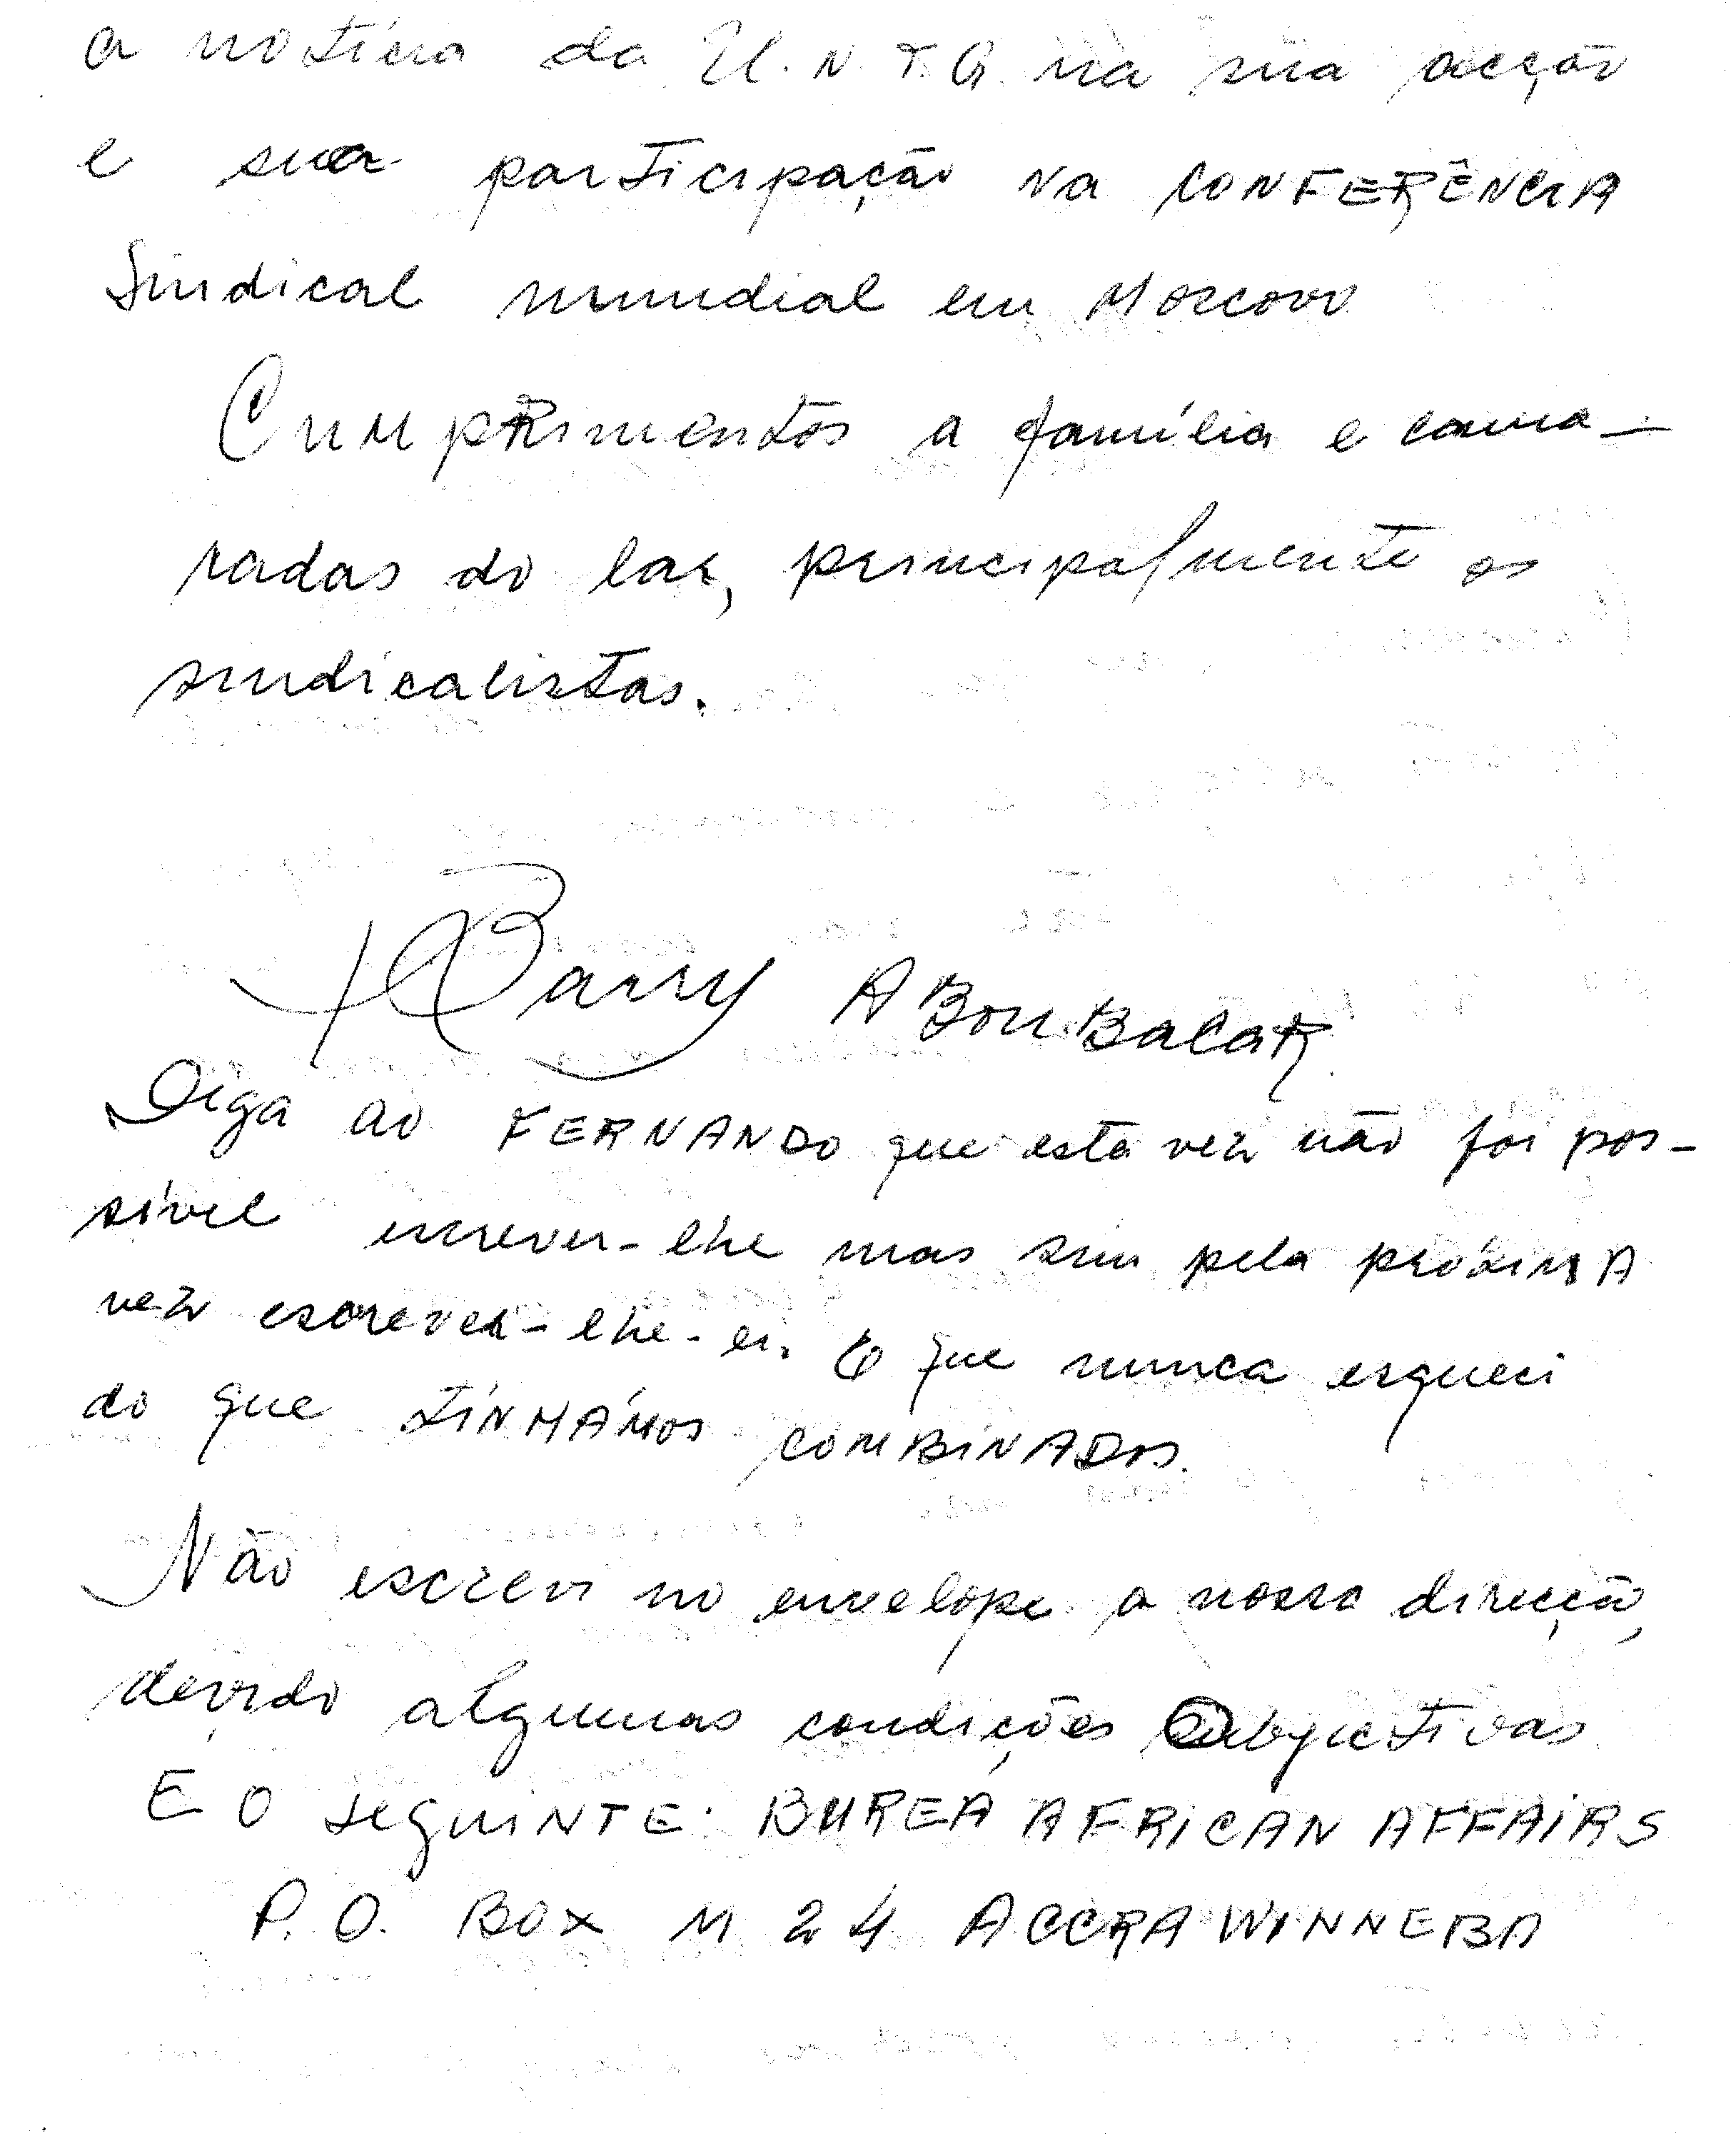 a notícia da U.N.T.G. na sua acção
e sua participação na CONFERÊNCIA
Sindical mundial em Moscovo
Cumprimentos a família e cama-
radas do lar, principalmente os
sindicalistas.
Barry ABouBacar
Diga ao FERNANDO que esta vez não foi pos-
sível escrever-lhe mas sim pela próximA
vez escrever-lhe-ei. E que nunca esqueci
do que tínHÁMos COMBINADOS.
Não escrevi no envelope a nossa direcção,
devido algumas condições subjectivas
E O seguINTE: BUREA AFRICAN AFFAIRS
P.O. BOX M 24 ACCRA WINNEBA